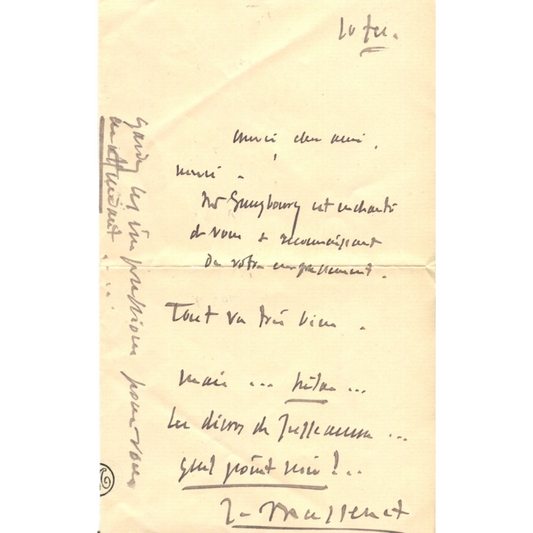 10 fev.
merci cher ami,
merci.
Mr Gunsbourg est enchanté
de vous & reconnaissant
de votre empressement.
Tout va très bien.
mais ... hélas ...
les décors de Jusseaume ...
quel point noir !..
J. Massenet
Gardez les impressions pour vous